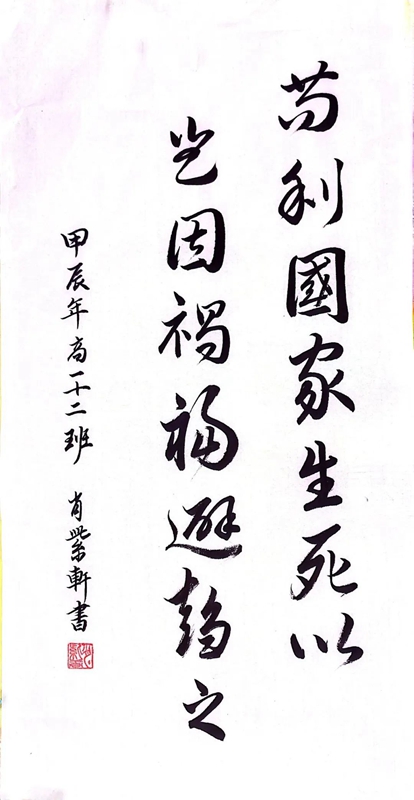 苟利國家生死以
豈因禍福避趨之
甲辰年高一十二班 肖紫軒書